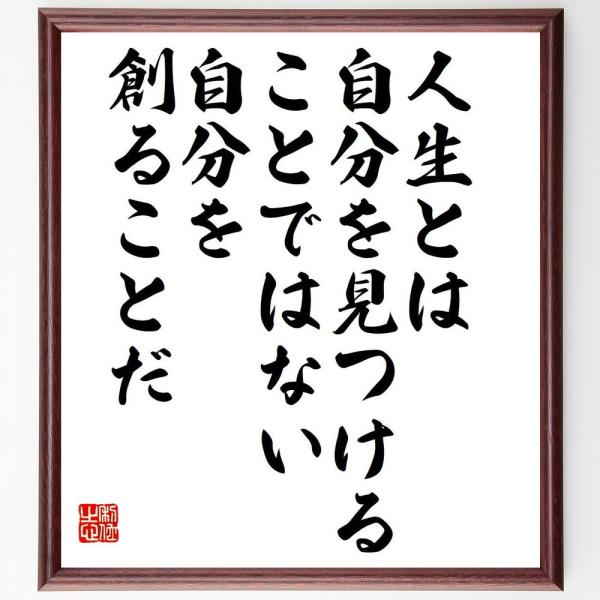 人生とは
自分を見つける
ことではない
自分を
創ることだ